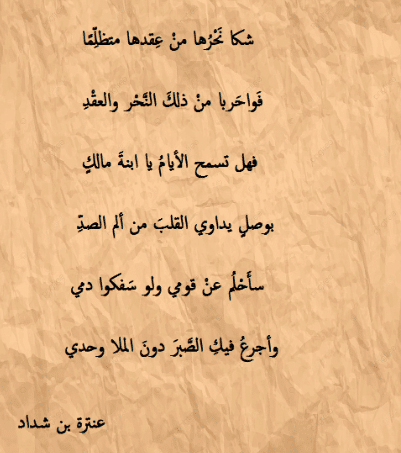 شكا نَحْرُها منْ عِقدها متظلِّمًا
فَواحَربا منْ ذلكَ النَّحْر والعقْدِ
فهل تسمح الأيامُ يا ابنةَ مالكٍ
بوصلٍ يداوي القلبَ من ألم الصدِّ
سأَحْلُم عنْ قومي ولو سَفكوا دمي
وأجرعُ فيكِ الصَّبرَ دونَ الملا وحدي
عنترة بن شداد